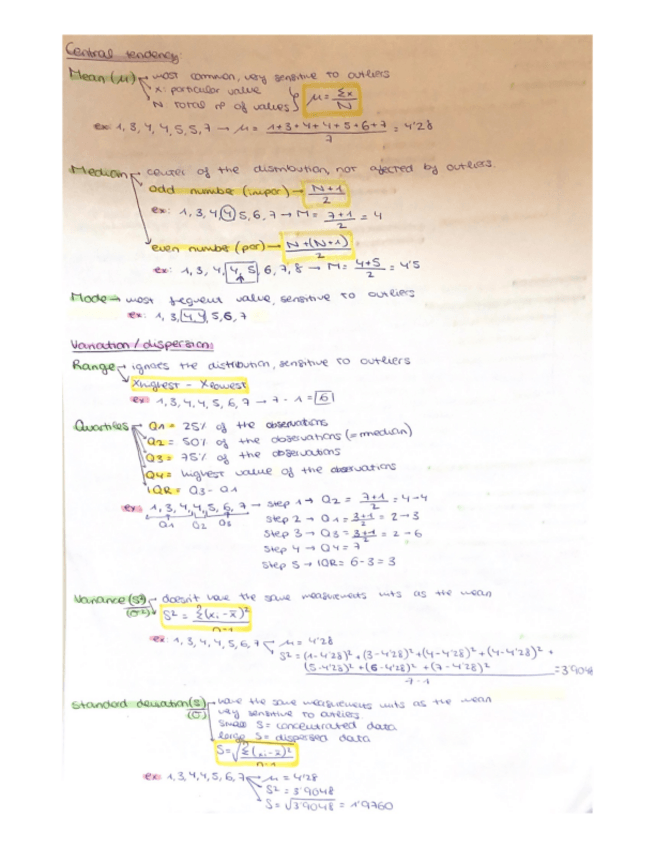 Central tendency:
Mean (μ) → most common, very sensitive to outliers
→ x: particular value
→ N: total nº of values } μ = Σx / N
ex: 1, 3, 4, 4, 5, 5, 7 → μ = 1+3+4+4+5+6+7 / 7 = 4'28
Median → center of the distribution, not affected by outliers.
odd number (impar) → N+1 / 2
ex: 1, 3, 4, 4, 5, 6, 7 → M = 7+1 / 2 = 4
even number (par) → N+(N+1) / 2
ex: 1, 3, 4, 4, 5, 6, 7, 8 → M = 4+5 / 2 = 4'5
Mode → most frequent value, sensitive to outliers
ex: 1, 3, 4, 4, 5, 6, 7
Variation / dispersion:
Range → ignores the distribution, sensitive to outliers
Xhighest - Xlowest
ex: 1, 3, 4, 4, 5, 6, 7 → 7 - 1 = 6
Quartiles → Q1 = 25% of the observations
Q2 = 50% of the observations (= median)
Q3 = 75% of the observations
Q4 = highest value of the observations
IQR = Q3 - Q1
ex: 1, 3, 4, 4, 5, 6, 7 → step 1 → Q2 = 7+1 / 2 = 4 → 4
Q1 Q2 Q3 step 2 → Q1 = 3+1 / 2 = 2 → 3
step 3 → Q3 = 3+1 / 2 = 2 → 6
step 4 → Q4 = 7
step 5 → IQR = 6-3 = 3
Variance (S²) → doesn't have the same measurements units as the mean
(σ²) S² = Σ(xᵢ - x̄)² / n-1
ex: 1, 3, 4, 4, 5, 6, 7 μ = 4'28
S² = (1-4'28)² + (3-4'28)² + (4-4'28)² + (4-4'28)² +
(5-4'28)² + (6-4'28)² + (7-4'28)² / 7-1 = 3'9048
Standard deviation (S) → have the same measurements units as the mean
(σ) very sensitive to outliers
small S = concentrated data
large S = dispersed data
S = √Σ(xᵢ - x̄)² / n-1
ex: 1, 3, 4, 4, 5, 6, 7 → μ = 4'28
S² = 3'9048
S = √3'9048 = 1'9760